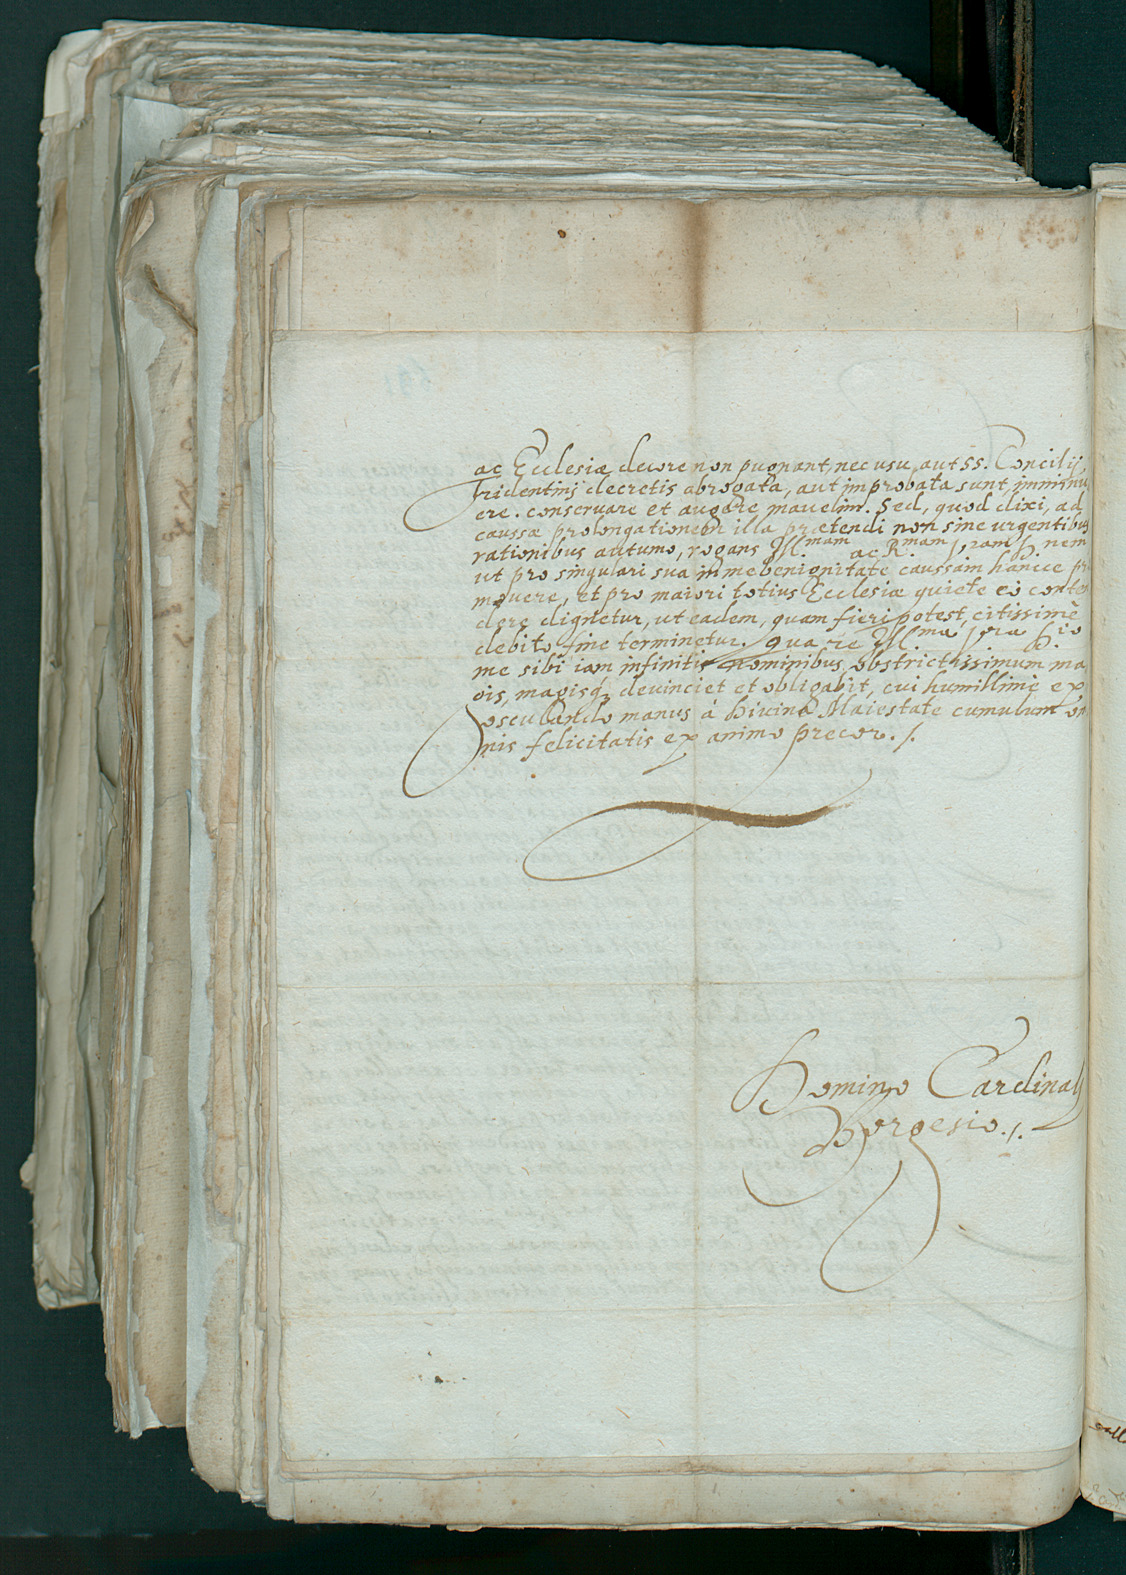 ac Ecclesiæ decore non pugnant, nec usu, aut SS. Concilij
Tridentinj decretis abrogata, aut improbata sunt, imminu
ere. conservare et augere mavelim. Sed, quod dixi, ad
caussæ prolongationem illa prætendi non sine urgentibus
rationibus autumo, rogans Ill.mam ac R.mam Vram D. nem
ut pro singulari sua in me benignitate caussam hancce pro
movere, et pro maiori totius Ecclesiæ quiete eò conten
dere dignetur, ut eadem, quam fieri potest, citissimè
debito fine terminetur. Qua re Ill.ma Vra D.io
me sibi iam infinitis nominibus obstrictissimum ma
gis, magisq; devinciet et obligabit, cui humillimè ex
osculando manus à Divina Maiestate cumulum om
nis felicitatis ex animo precor ./.
Domino Cardinali
Borgesio ./.